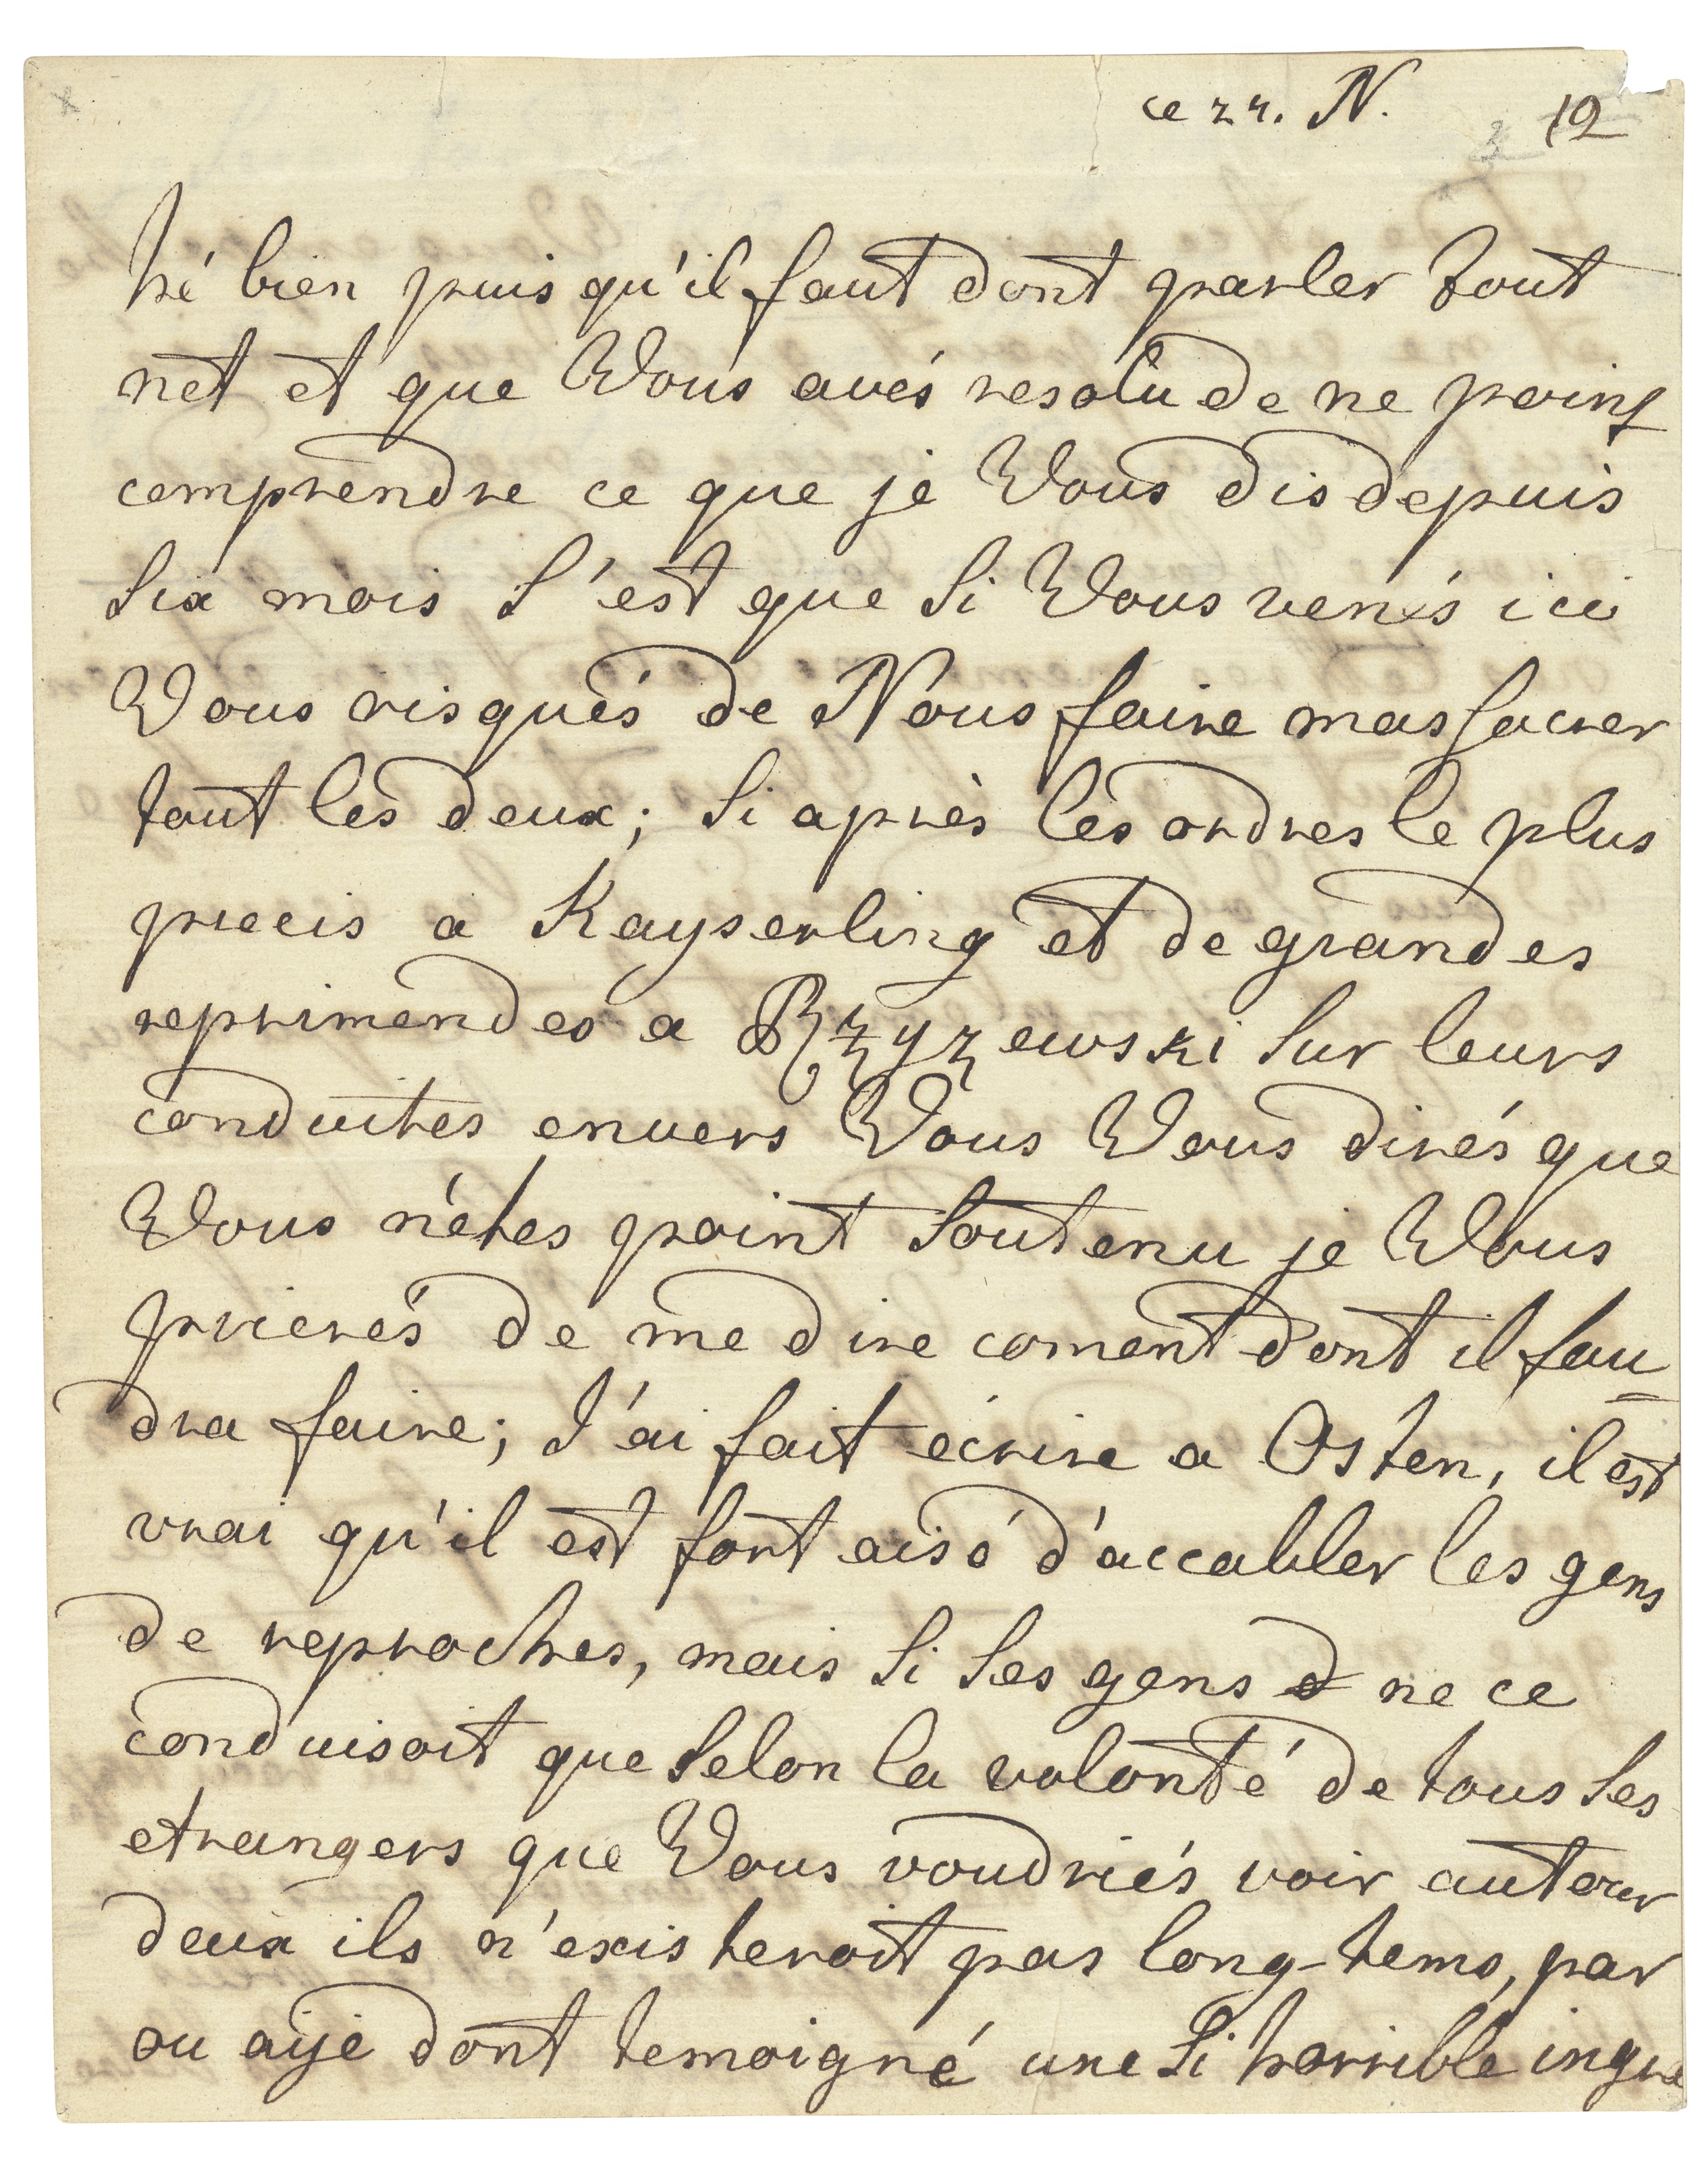 ce 22. N. 12
hé bien puis qu'il faut dont parler tout
net et que Vous avés resolu de ne point
comprendre ce que je Vous dis depuis
Six mois S'est que Si Vous venés ici
Vous risqués de Nous faire massacrer
tout les deux; Si après les ordres le plus
precis a Kayserling et de grandes
reprimendes a Rzyzewski Sur leurs
conduites envers Vous Vous dirés que
Vous n'étes point Soutenu je Vous
prierés de me dire coment dont il fau
dra faire; J'ai fait écrire a Osten, il est
vrai qu'il est fort aisé d'accabler les gens
de reproches, mais Si Ses gens ne ce
conduisoit que Selon la volonté de tous Ses
etrangers que Vous voudriés voir autour
deux ils n'existeroit pas long-tems, par
ou aije dont temoigné une Si horrible ingra